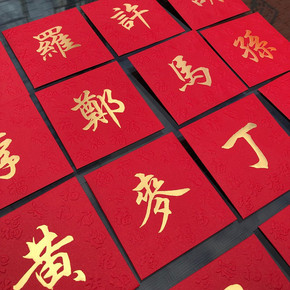 羅 許
鄭 馬 孫
麥 丁
黃